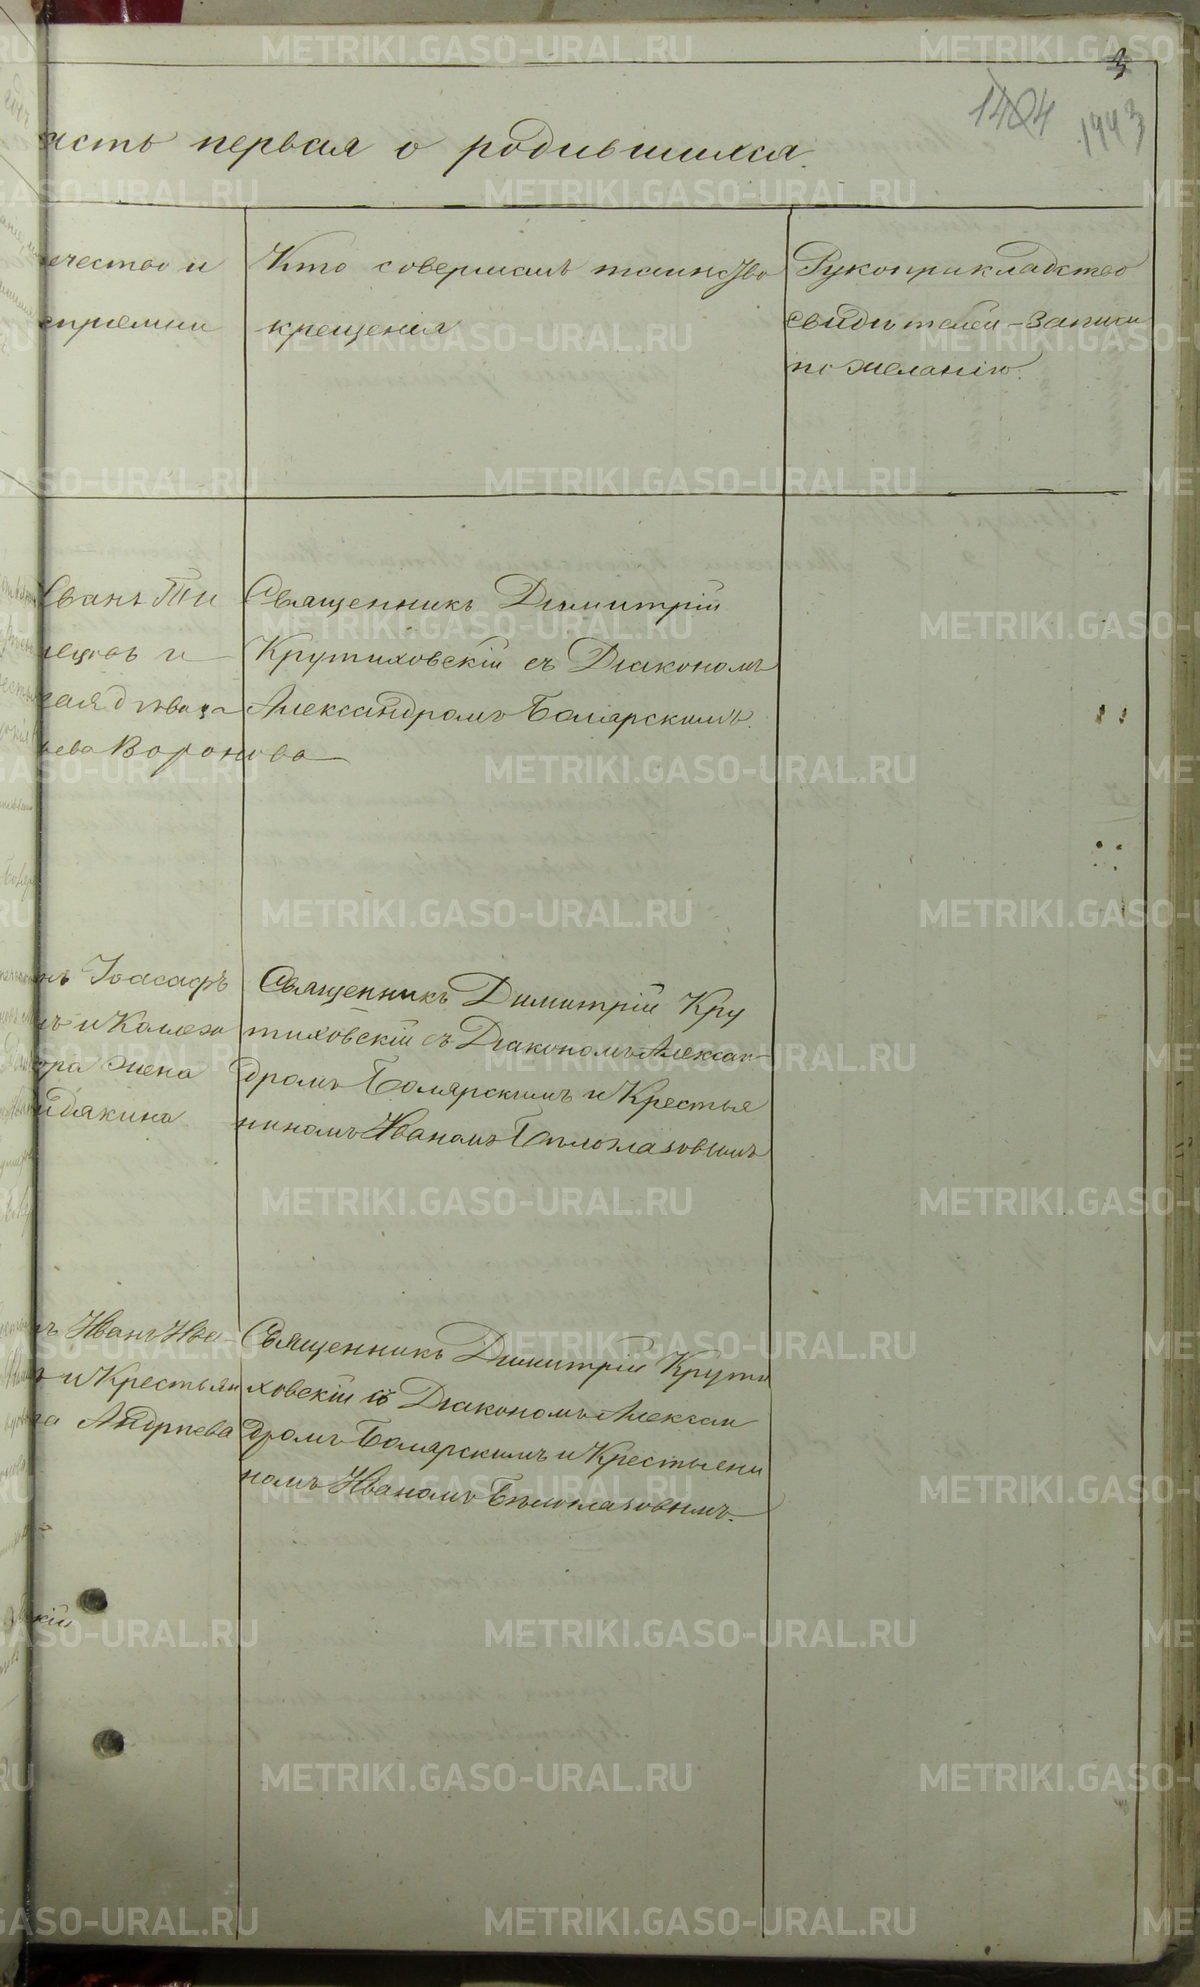 3
1424 1443
асть первая о родившихся.
ечество и
сприемни
Кто совершалъ таинство
крещенія
Рукоприкладство
свидѣтелей записи
по желанію.
Иванъ Ти
нецовъ и
кая дѣвица
ьева Воронова
Священникъ Димитрій
Крутиховскій съ Діакономъ
Александромъ Боярскимъ.
нъ Іоасафъ
ъ и Коллежс
ора жена
йдякина
Священникъ Димитрій Кру
тиховскій съ Діакономъ Алексан-
дромъ Боярскимъ и Крестья
ниномъ Иваномъ Бѣлоглазовымъ
ъ Иванъ Ива-
ъ и Крестьян
на Андреева
Священникъ Димитрій Крути
ховскій съ Діакономъ Алексан
дромъ Боярскимъ и Крестьяни
номъ Иваномъ Бѣлоглазовымъ.
скій
METRIKI.GASO-URAL.RU